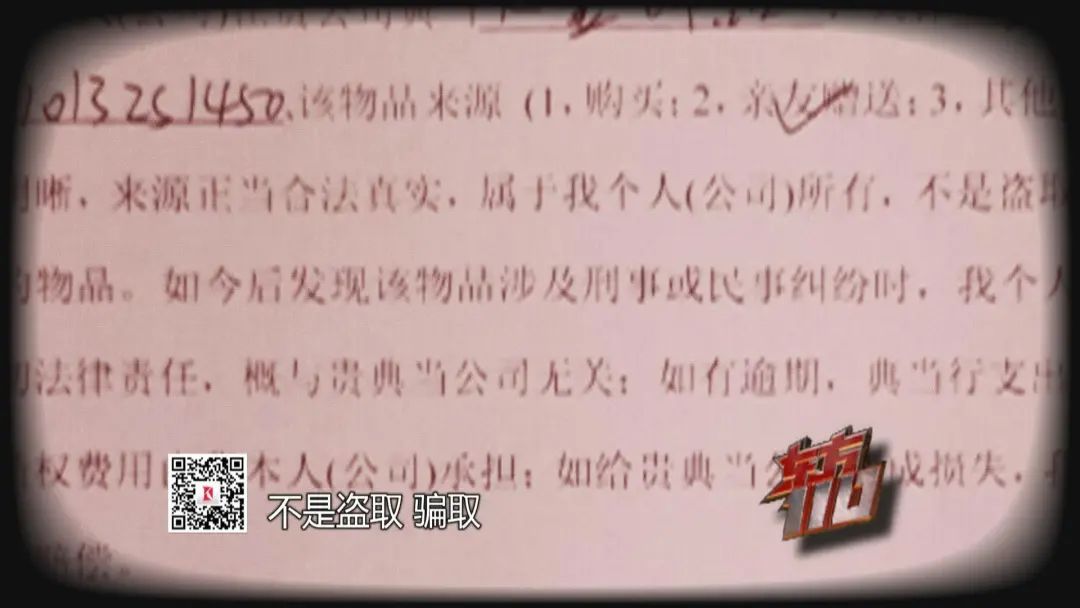 01325 1450.该物品来源 (1.购买;2.亲友赠送;3.其他
晰,来源正当合法真实,属于我个人(公司)所有,不是盗取
物品。如今后发现该物品涉及刑事或民事纠纷时,我个人
法律责任,概与贵典当公司无关;如有逾期,典当行支出
权费用 本人(公司)承担;如给贵典当 成损失,
赔偿。
不是盗取 骗取
东方110